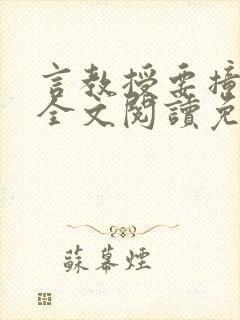 言教授要撞
全文閱讀免
蘇幕煙